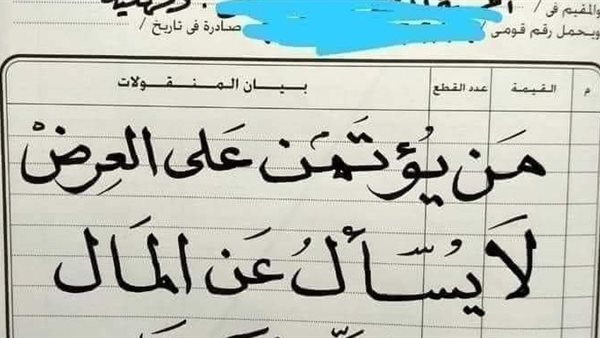 والمقيم فى /
ويحمل رقم قومى / صادرة فى تاريخ /
م القيمة عدد القطع بيان المنقولات
مَن يُؤتَمَن عَلى العِرضْ
لَا يُسألُ عَن المَال